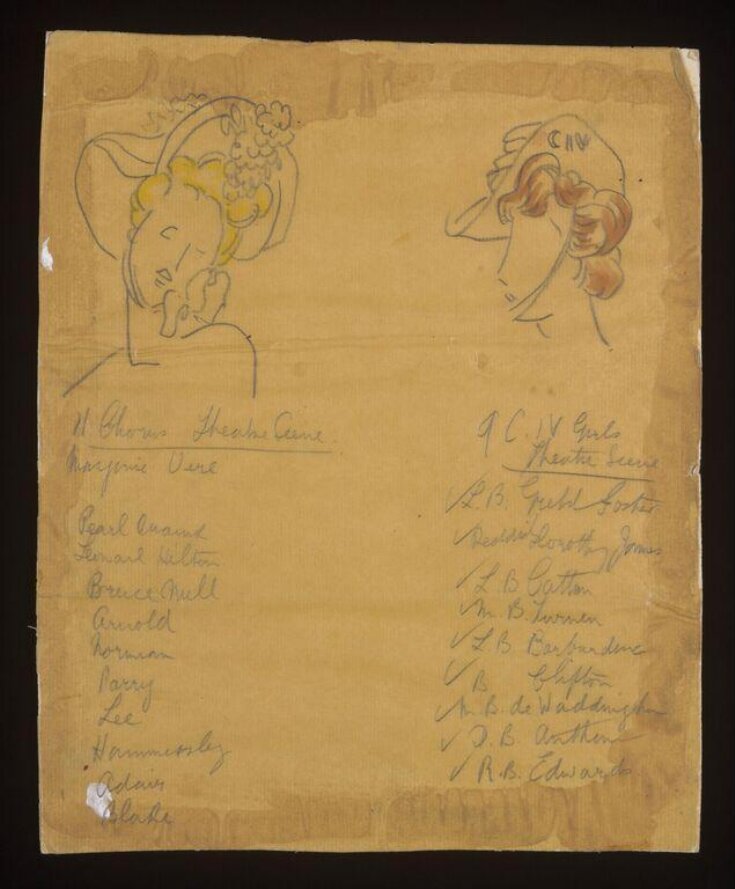 CIV
11 Chorus Theatre Scene.
Marjorie Vere
Pearl
Leonard Hilton
Bruce Mill
Arnold
Norman
Parry
Lee
Hammersley
Adair
Blake
9 C.IV Girls
Theatre Scene
L. B. Foster
Dorothy Jones
L B Catton
M. B. Turner
L B.
B Clifton
M. B. de Waddington
D. B.
R. B. Edwards